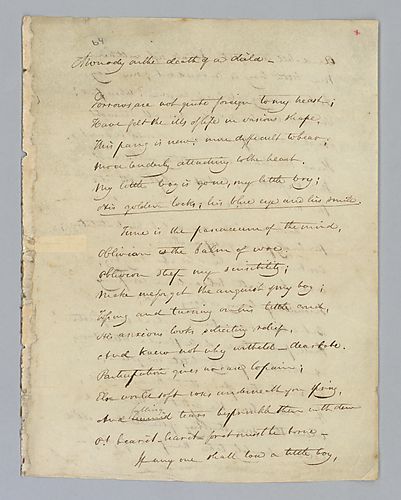 64
A monody on the death of a child —
Sorrows are not quite foreign to my heart;
Have felt the ills of life in various shape,
This pang is new; more difficult to bear,
More tenderly attaching to the heart.
My little boy is gone, my little boy;
His golden locks; his blue eye and his smile.
Time is the panaceum of the mind,
Oblivion is the balm of woe.
Oblivion steep my sensibility;
Make me forget the anguish of my boy;
Tossing and turning on his little bed,
His anxious looks soliciting relief,
And knew not why withheld — dear babe.
Participation gives no ease to pain;
Else would soft rose underneath you spring,
falling
And tears besprinkle them with dew
It bears not must be borne —
If any one shall love a little boy,